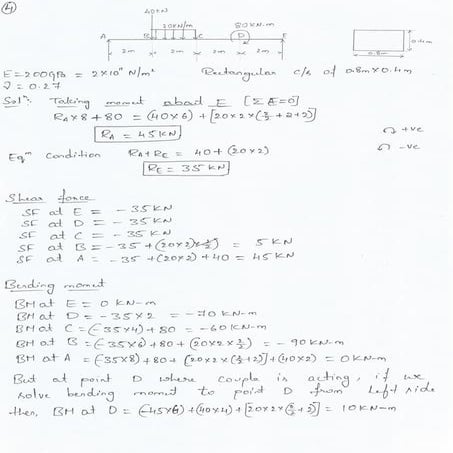 ④
40kN
20KN/m
80KN-m
A B C D E
2m 2m 2m 2m
0.4m
0.8m
E = 200GPa = 2×10" N/m² Rectangular c/s of 0.8m×0.4m
ν = 0.27
Solⁿ: Taking moment about E [ΣE=0]
RA×8 + 80 = (40×6) + [20×2×(2/2+2+2)]
RA = 45KN
+ve
Eqᵐ Condition RA+RE = 40+(20×2)
-ve
RE = 35KN
Shear force
SF at E = -35KN
SF at D = -35KN
SF at C = -35KN
SF at B = -35+(20×2×2/2) = 5KN
SF at A = -35+(20×2)+40 = 45KN
Bending moment
BM at E = 0 KN-m
BM at D = -35×2 = -70KN-m
BM at C = (-35×4)+80 = -60KN-m
BM at B = (-35×6)+80+(20×2×2/2) = -90KN-m
BM at A = (-35×8)+80+(20×2×(2/2+2)]+(40×2) = 0KN-m
But at point D where couple is acting, if we
solve bending moment to point D from left side
then, BM at D = (-45×6)+(40×4)+[20×2×(2/2+2)] = 10KN-m